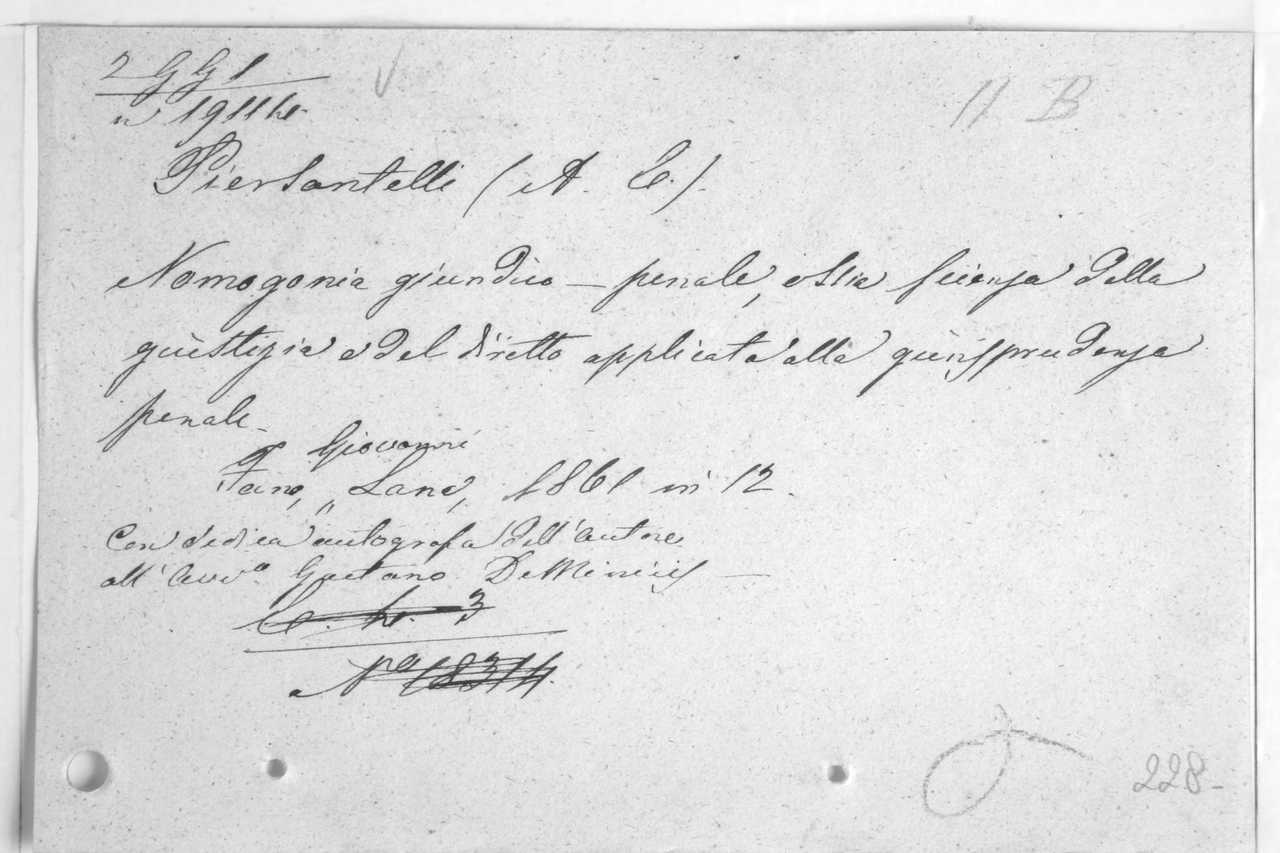 2 G G 1
n 19114
11 B
Piersantelli (A. C.).
Nomogonia giuridico - penale, ossia scienza della
giustizia e del diretto applicata alla giurisprudenza
penale.
Giovanni
Fano, Lana, 1861 in 12.
Con dedica autografa dell'autore
all'Avv.o Gaetano De Minicis
N.o 18314
228